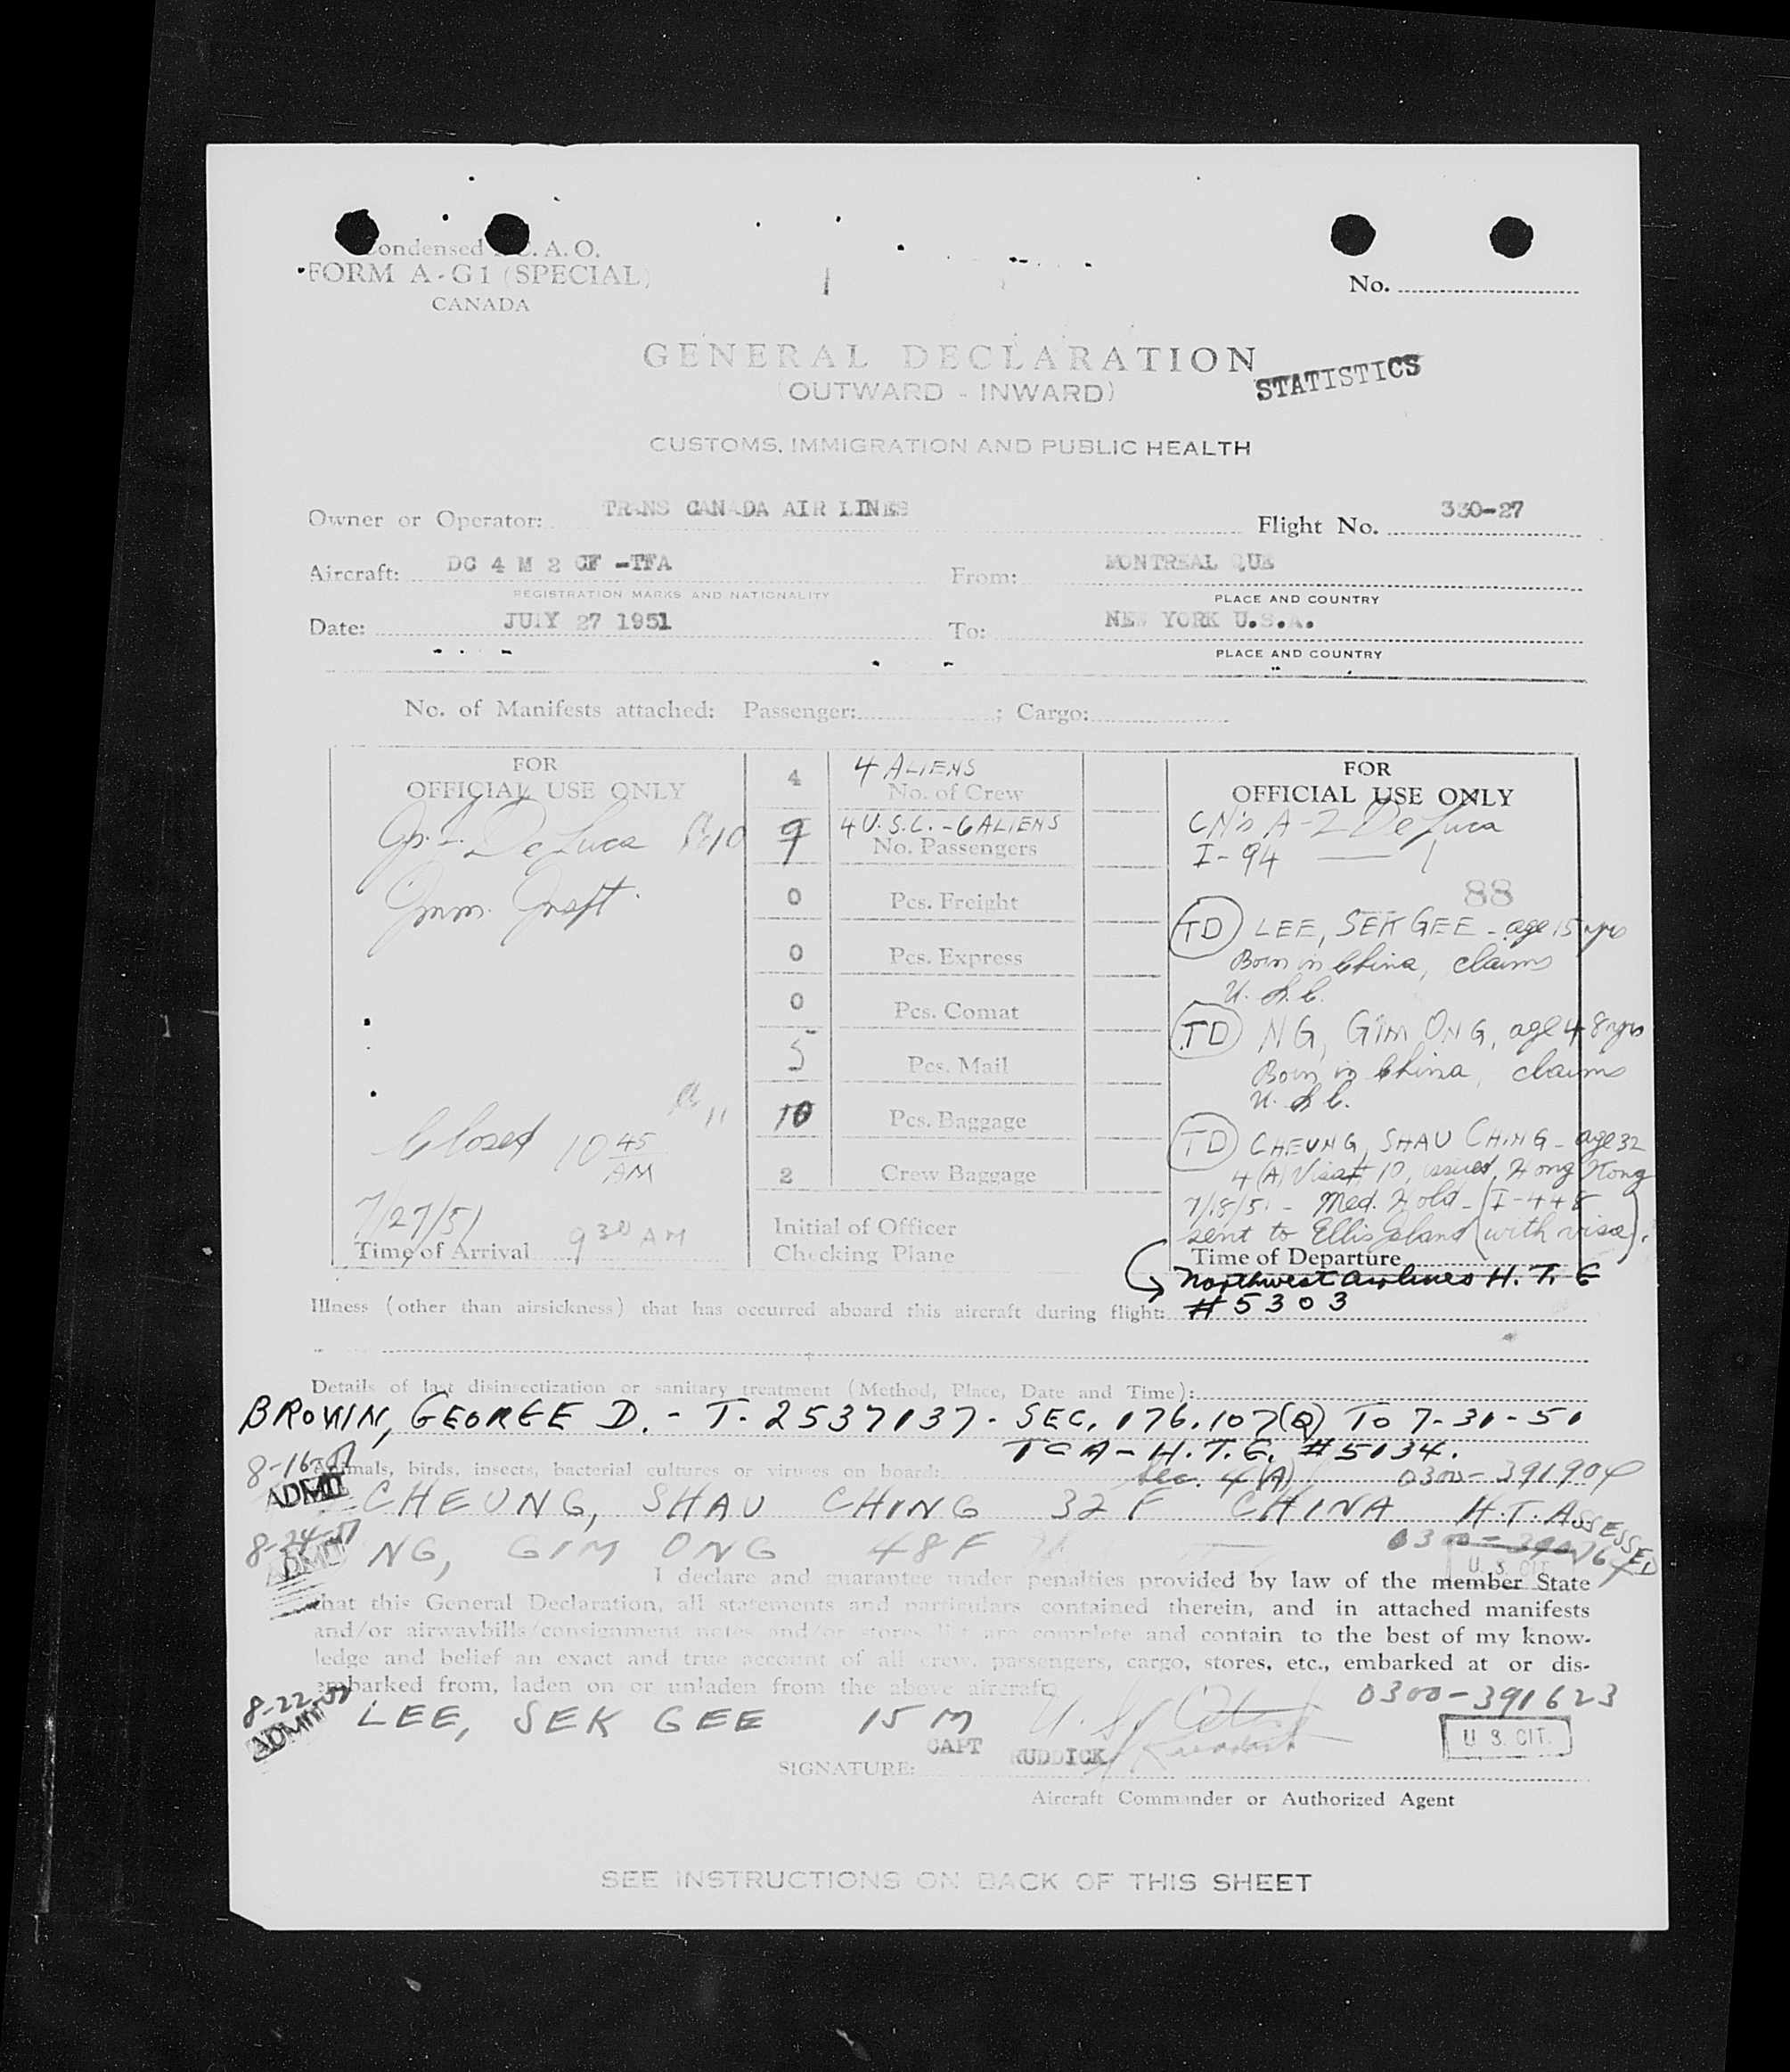 Condensed I.C.A.O.
FORM A-G1 (SPECIAL)
CANADA
No.
GENERAL DECLARATION
(OUTWARD - INWARD)
STATISTICS
CUSTOMS, IMMIGRATION AND PUBLIC HEALTH
Owner or Operator: TRANS CANADA AIR LINES Flight No. 330-27
Aircraft: DC 4 M 2 CF -TFA From: MONTREAL QUE
REGISTRATION MARKS AND NATIONALITY PLACE AND COUNTRY
Date: JULY 27 1951 To: NEW YORK U.S.A.
PLACE AND COUNTRY
No. of Manifests attached: Passenger: ; Cargo:
FOR
OFFICIAL USE ONLY
De Luca
Closed 10 45 AM
7/27/51
Time of Arrival 9 30 AM
4 4 ALIENS
No. of Crew
9 4 U.S.C. - 6 ALIENS
No. Passengers
0 Pcs. Freight
0 Pcs. Express
0 Pcs. Comat
5 Pcs. Mail
10 Pcs. Baggage
2 Crew Baggage
Initial of Officer
Checking Plane
FOR
OFFICIAL USE ONLY
CN's A-2 De Luca
I-94 — 1
88
TD LEE, SEK GEE - age 15 yrs
Born in China, claims
U.S.C.
TD NG, GIM ONG, age 48 yrs
Born in China, claims
U.S.C.
TD CHEUNG, SHAU CHING - age 32
4(A) Visa # 10, issued, Hong Kong
7/18/51 - Med. Hold - (I-448
sent to Ellis Island (with visa).
Time of Departure
Northwest Airlines H. T. E
# 5303
Illness (other than airsickness) that has occurred aboard this aircraft during flight:
Details of last disinsectization or sanitary treatment (Method, Place, Date and Time):
BROWN, GEORGE D. - T- 2537137 - SEC. 176.107(Q) TO 7-31-51
TCA - H.T.E. #5134.
Animals, birds, insects, bacterial cultures or viruses on board:
8-16-51 Sec. 4(A) 0300-391904
ADMIT CHEUNG, SHAU CHING 32 F CHINA H.T. ASSESSED
8-24-51
ADMIT NG, GIM ONG 48 F
U. S. CIT.
I declare and guarantee under penalties provided by law of the member State
that this General Declaration, all statements and particulars contained therein, and in attached manifests
and/or airwaybills/consignment notes and/or stores list are complete and contain to the best of my know-
ledge and belief an exact and true account of all crew, passengers, cargo, stores, etc., embarked at or dis-
embarked from, laden on or unladen from the above aircraft.
8-22-51 0300-391623
ADMIT LEE, SEK GEE 15 M U.S.
U. S. CIT.
CAPT RUDDICK
SIGNATURE:
Aircraft Commander or Authorized Agent
SEE INSTRUCTIONS ON BACK OF THIS SHEET